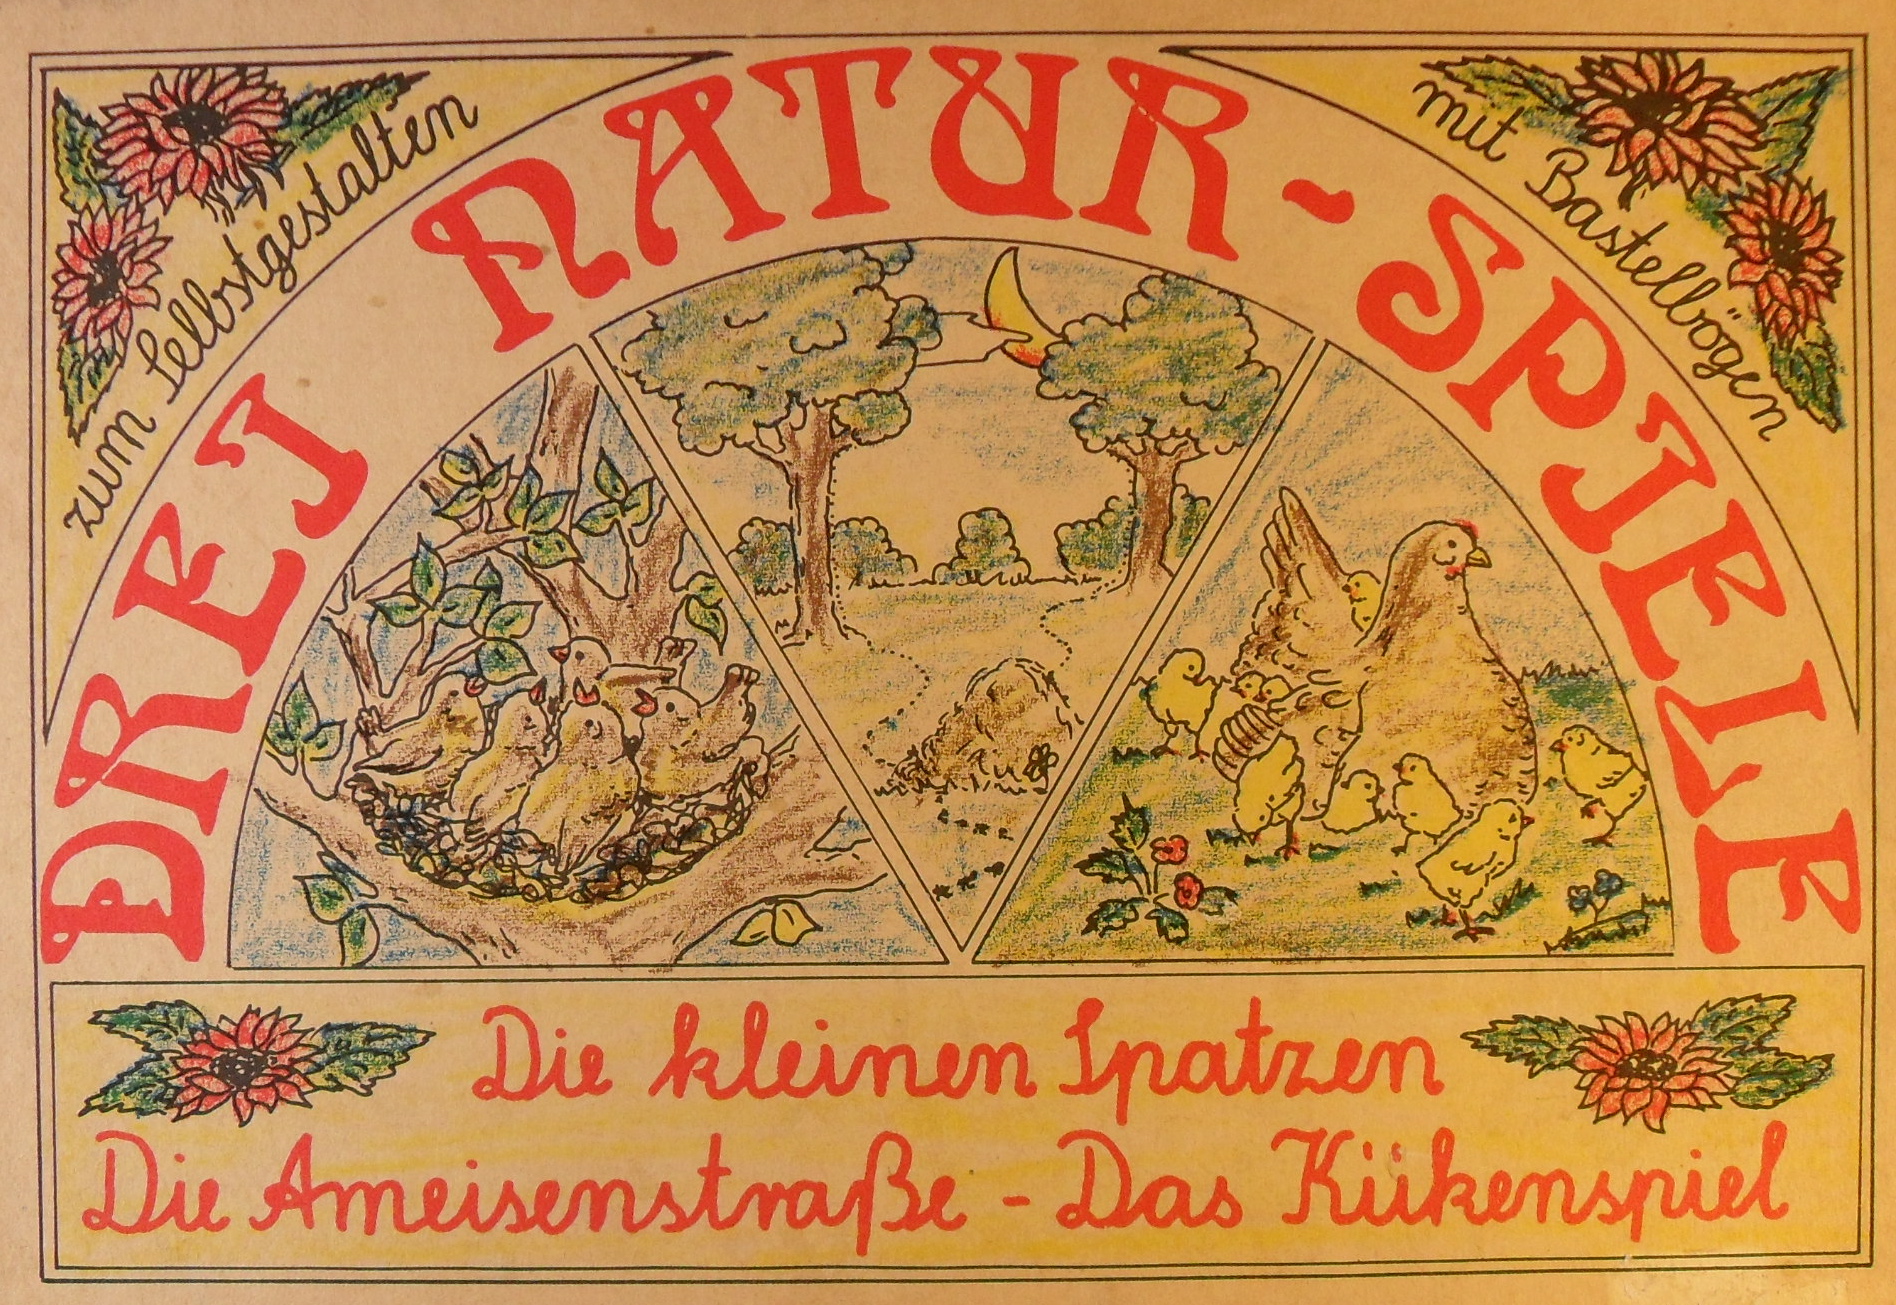 zum Selbstgestalten
DREI NATUR-SPIELE
mit Bastelbögen
Die kleinen Spatzen
Die Ameisenstraße - Das Kükenspiel